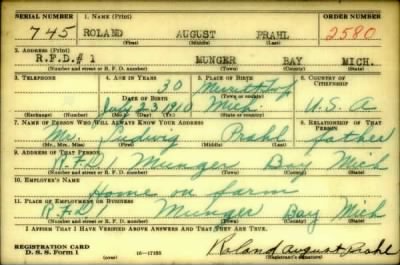 SERIAL NUMBER 1. NAME (Print) ORDER NUMBER
745 ROLAND AUGUST PRAHL 2580
(First) (Middle) (Last)
2. ADDRESS (Print)
R.F.D.# 1 MUNGER BAY MICH.
(Number and street or R. F. D. number) (Town) (County) (State)
3. TELEPHONE 4. AGE IN YEARS 5. PLACE OF BIRTH 6. COUNTRY OF CITIZENSHIP
30 Merritt Twp
DATE OF BIRTH
July 23 1910 Mich. U.S.A
(Exchange) (Number) (Mo.) (Day) (Yr.) (State or country)
7. NAME OF PERSON WHO WILL ALWAYS KNOW YOUR ADDRESS 8. RELATIONSHIP OF THAT PERSON
Mr. Prahl father
(Mr., Mrs., Miss) (First) (Middle) (Last)
9. ADDRESS OF THAT PERSON
R.F.D. 1 Munger Bay Mich
(Number and street or R. F. D. number) (Town) (County) (State)
10. EMPLOYER'S NAME
Home on farm
11. PLACE OF EMPLOYMENT OR BUSINESS
R.F.D. 1 Munger Bay Mich
(Number and street or R. F. D. number) (Town) (County) (State)
I AFFIRM THAT I HAVE VERIFIED ABOVE ANSWERS AND THAT THEY ARE TRUE.
REGISTRATION CARD
D. S. S. Form 1 (over) 16—17105 Roland August Prahl
(Registrant's signature)